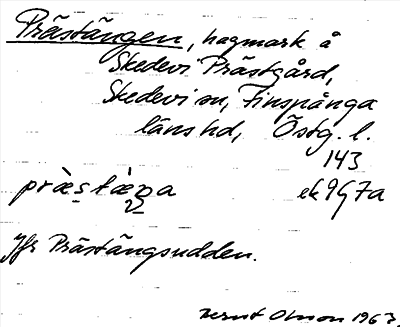 Prästängen, hagmark å
Skedevi Prästgård,
Skedevi sn, Finspånga
läns hd, Östg. l.
143
prɑ̀stæŋa ek 9G7a
Jfr Prästängsudden.
Bernt Olsson 1963.